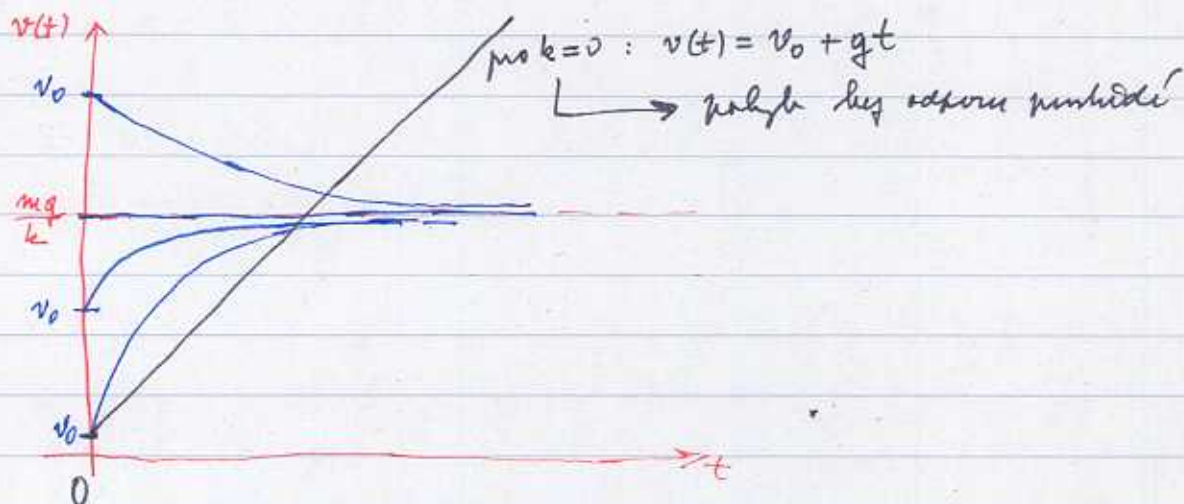 v(t)
pro k=0 : v(t) = v₀ + gt
v₀
pohyb bez odporu prostředí
mg
k
v₀
v₀
t
0